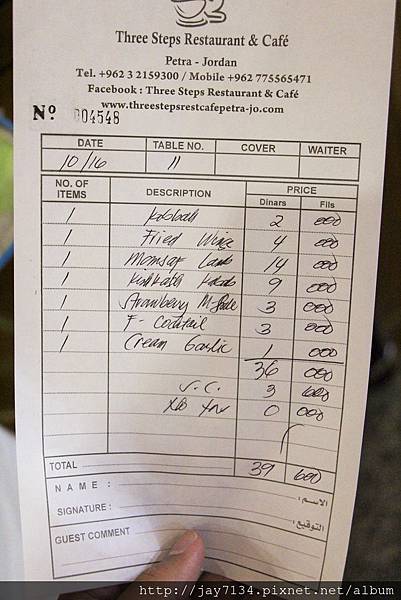 Three Steps Restaurant & Café
Petra - Jordan
Tel. +962 3 2159300 / Mobile +962 775565471
Facebook : Three Steps Restaurant & Café
www.threestepsrestcafepetra-jo.com
Nº 004548
DATE TABLE NO. COVER WAITER
10/16 11
NO. OF ITEMS DESCRIPTION PRICE
Dinars Fils
1 2 000
1 Fried Wing 4 000
1 Momsaf Lamb 14 000
1 9 000
1 Strawberry 3 000
1 F- Cocktail 3 000
1 Cream Garlic 1 000
36 000
S.C. 3 600
0 000
TOTAL 39 600
NAME : الاسم :
SIGNATURE : التوقيع :
GUEST COMMENT
http://jay7134.pixnet.net/album